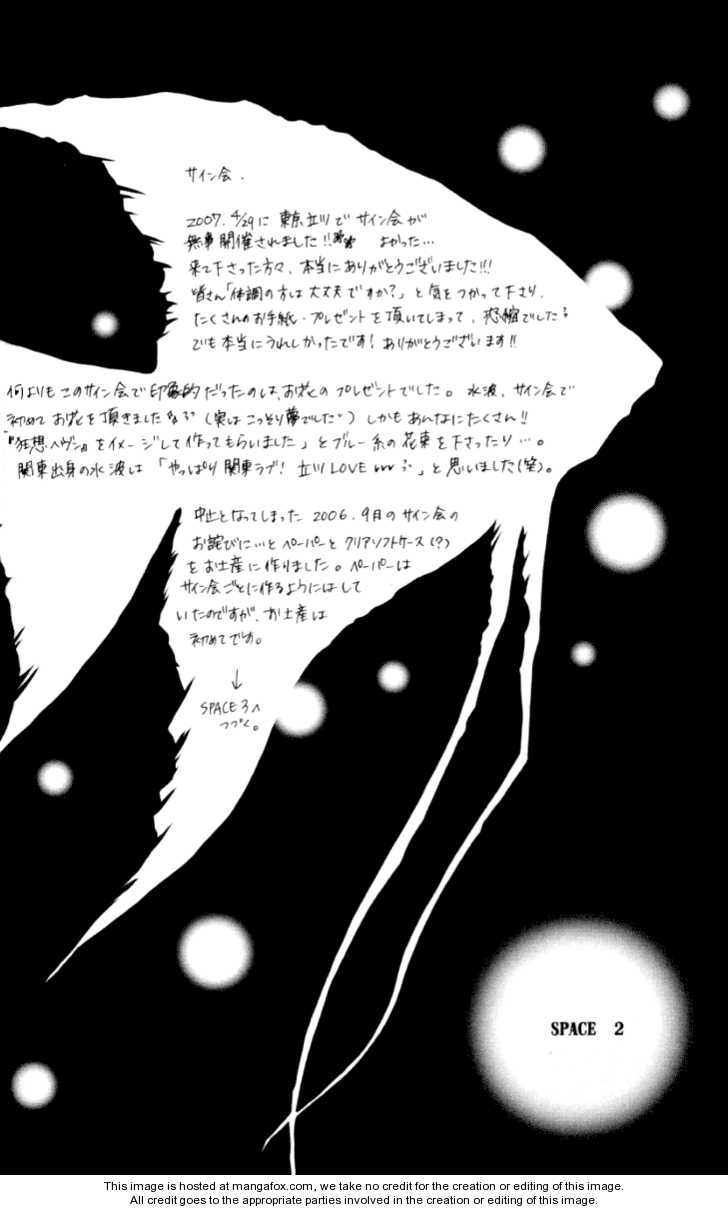 サイン会.
2007.4/29に 東京立川で サイン会が
無事開催されました!! よかった…
来て下さった方々、本当にありがとうございました!!!
皆さん「体調の方は大丈夫ですか?」と気をつかって下さり、
たくさんのお手紙・プレゼントを頂いてしまって、恐縮でした
でも本当にうれしかったです! ありがとうございます!!
何よりもこのサイン会で印象的だったのは、お花のプレゼントでした。水波、サイン会で
初めてお花を頂きました (実はこっそり夢でした) しかもあんなにたくさん!!
『狂想ヘヴン』をイメージして作ってもらいました」とブルー系の花束を下さったり…。
関東出身の水波は「やっぱり関東ラブ! 立川LOVE」と思いました(笑)。
中止となってしまった 2006.9月のサイン会の
お詫びに…とペーパーとクリアソフトケース(?)
をお土産に作りました。ペーパーは
サイン会ごとに作るようにはして
いたのですが、お土産は
初めてです。
↓
SPACE 3へ
つづく。
SPACE 2
This image is hosted at mangafox.com, we take no credit for the creation or editing of this image.
All credit goes to the appropriate parties involved in the creation or editing of this image.